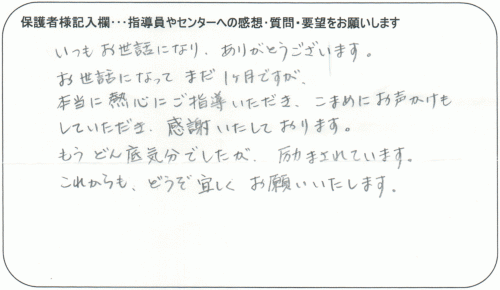 保護者様記入欄･･･指導員やセンターへの感想・質問・要望をお願いします
いつもお世話になり、ありがとうございます。
お世話になって まだ1ヶ月ですが、
本当に熱心にご指導いただき、こまめにお声かけも
していただき、感謝いたしております。
もう どん底気分でしたが、励まされています。
これからも、どうぞ宜しく お願いいたします。